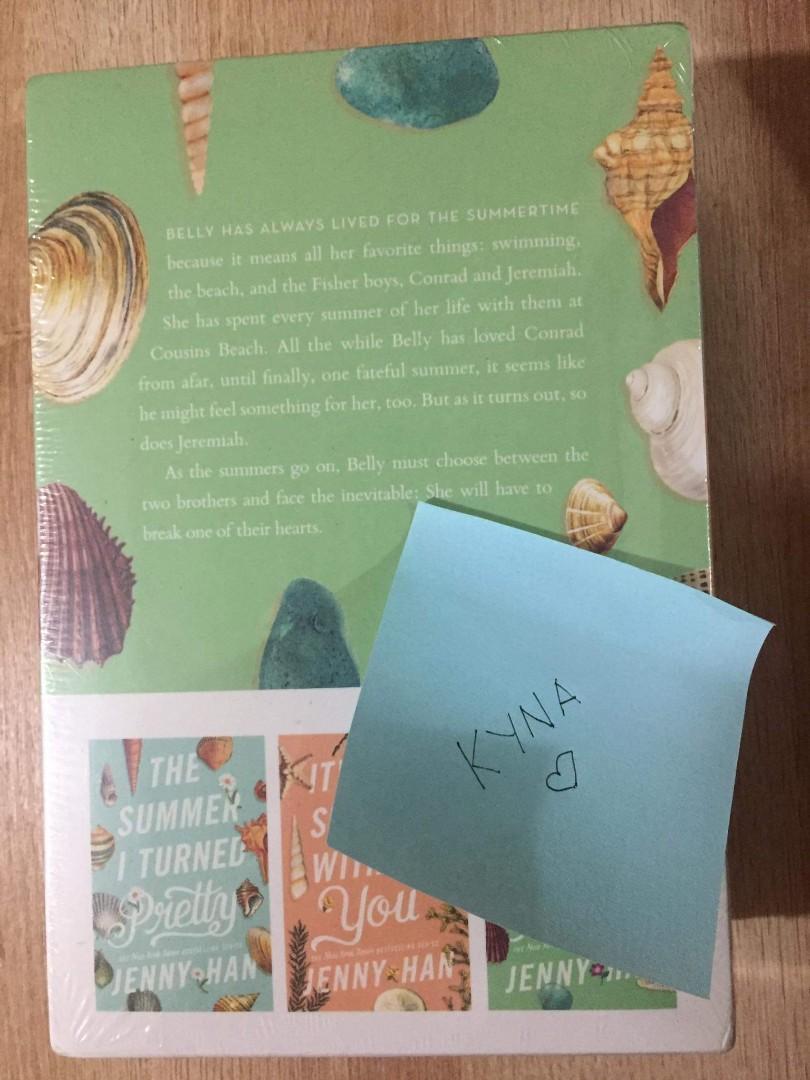 BELLY HAS ALWAYS LIVED FOR THE SUMMERTIME
because it means all her favorite things: swimming,
the beach, and the Fisher boys, Conrad and Jeremiah.
She has spent every summer of her life with them at
Cousins Beach. All the while Belly has loved Conrad
from afar, until finally, one fateful summer, it seems like
he might feel something for her, too. But as it turns out, so
does Jeremiah.
As the summers go on, Belly must choose between the
two brothers and face the inevitable: She will have to
break one of their hearts.
KYNA
THE
SUMMER
I TURNED
Pretty
JENNY HAN
You
JENNY HAN
JENNY